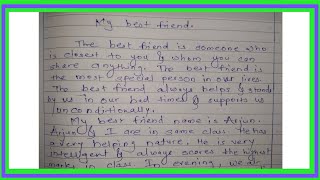 My best friend.
The best friend is someone who
is closest to you & whom you can
share anything. The best friend is
the most special person in our lives.
The best friend always helps & stands
by us in our bad times & supports us
unconditionally.
My best friend name is Arjun.
Arjun & I are in same class. He has
a very helping nature. He is very
intelligent & always scores the highest
marks in class. In evening, we